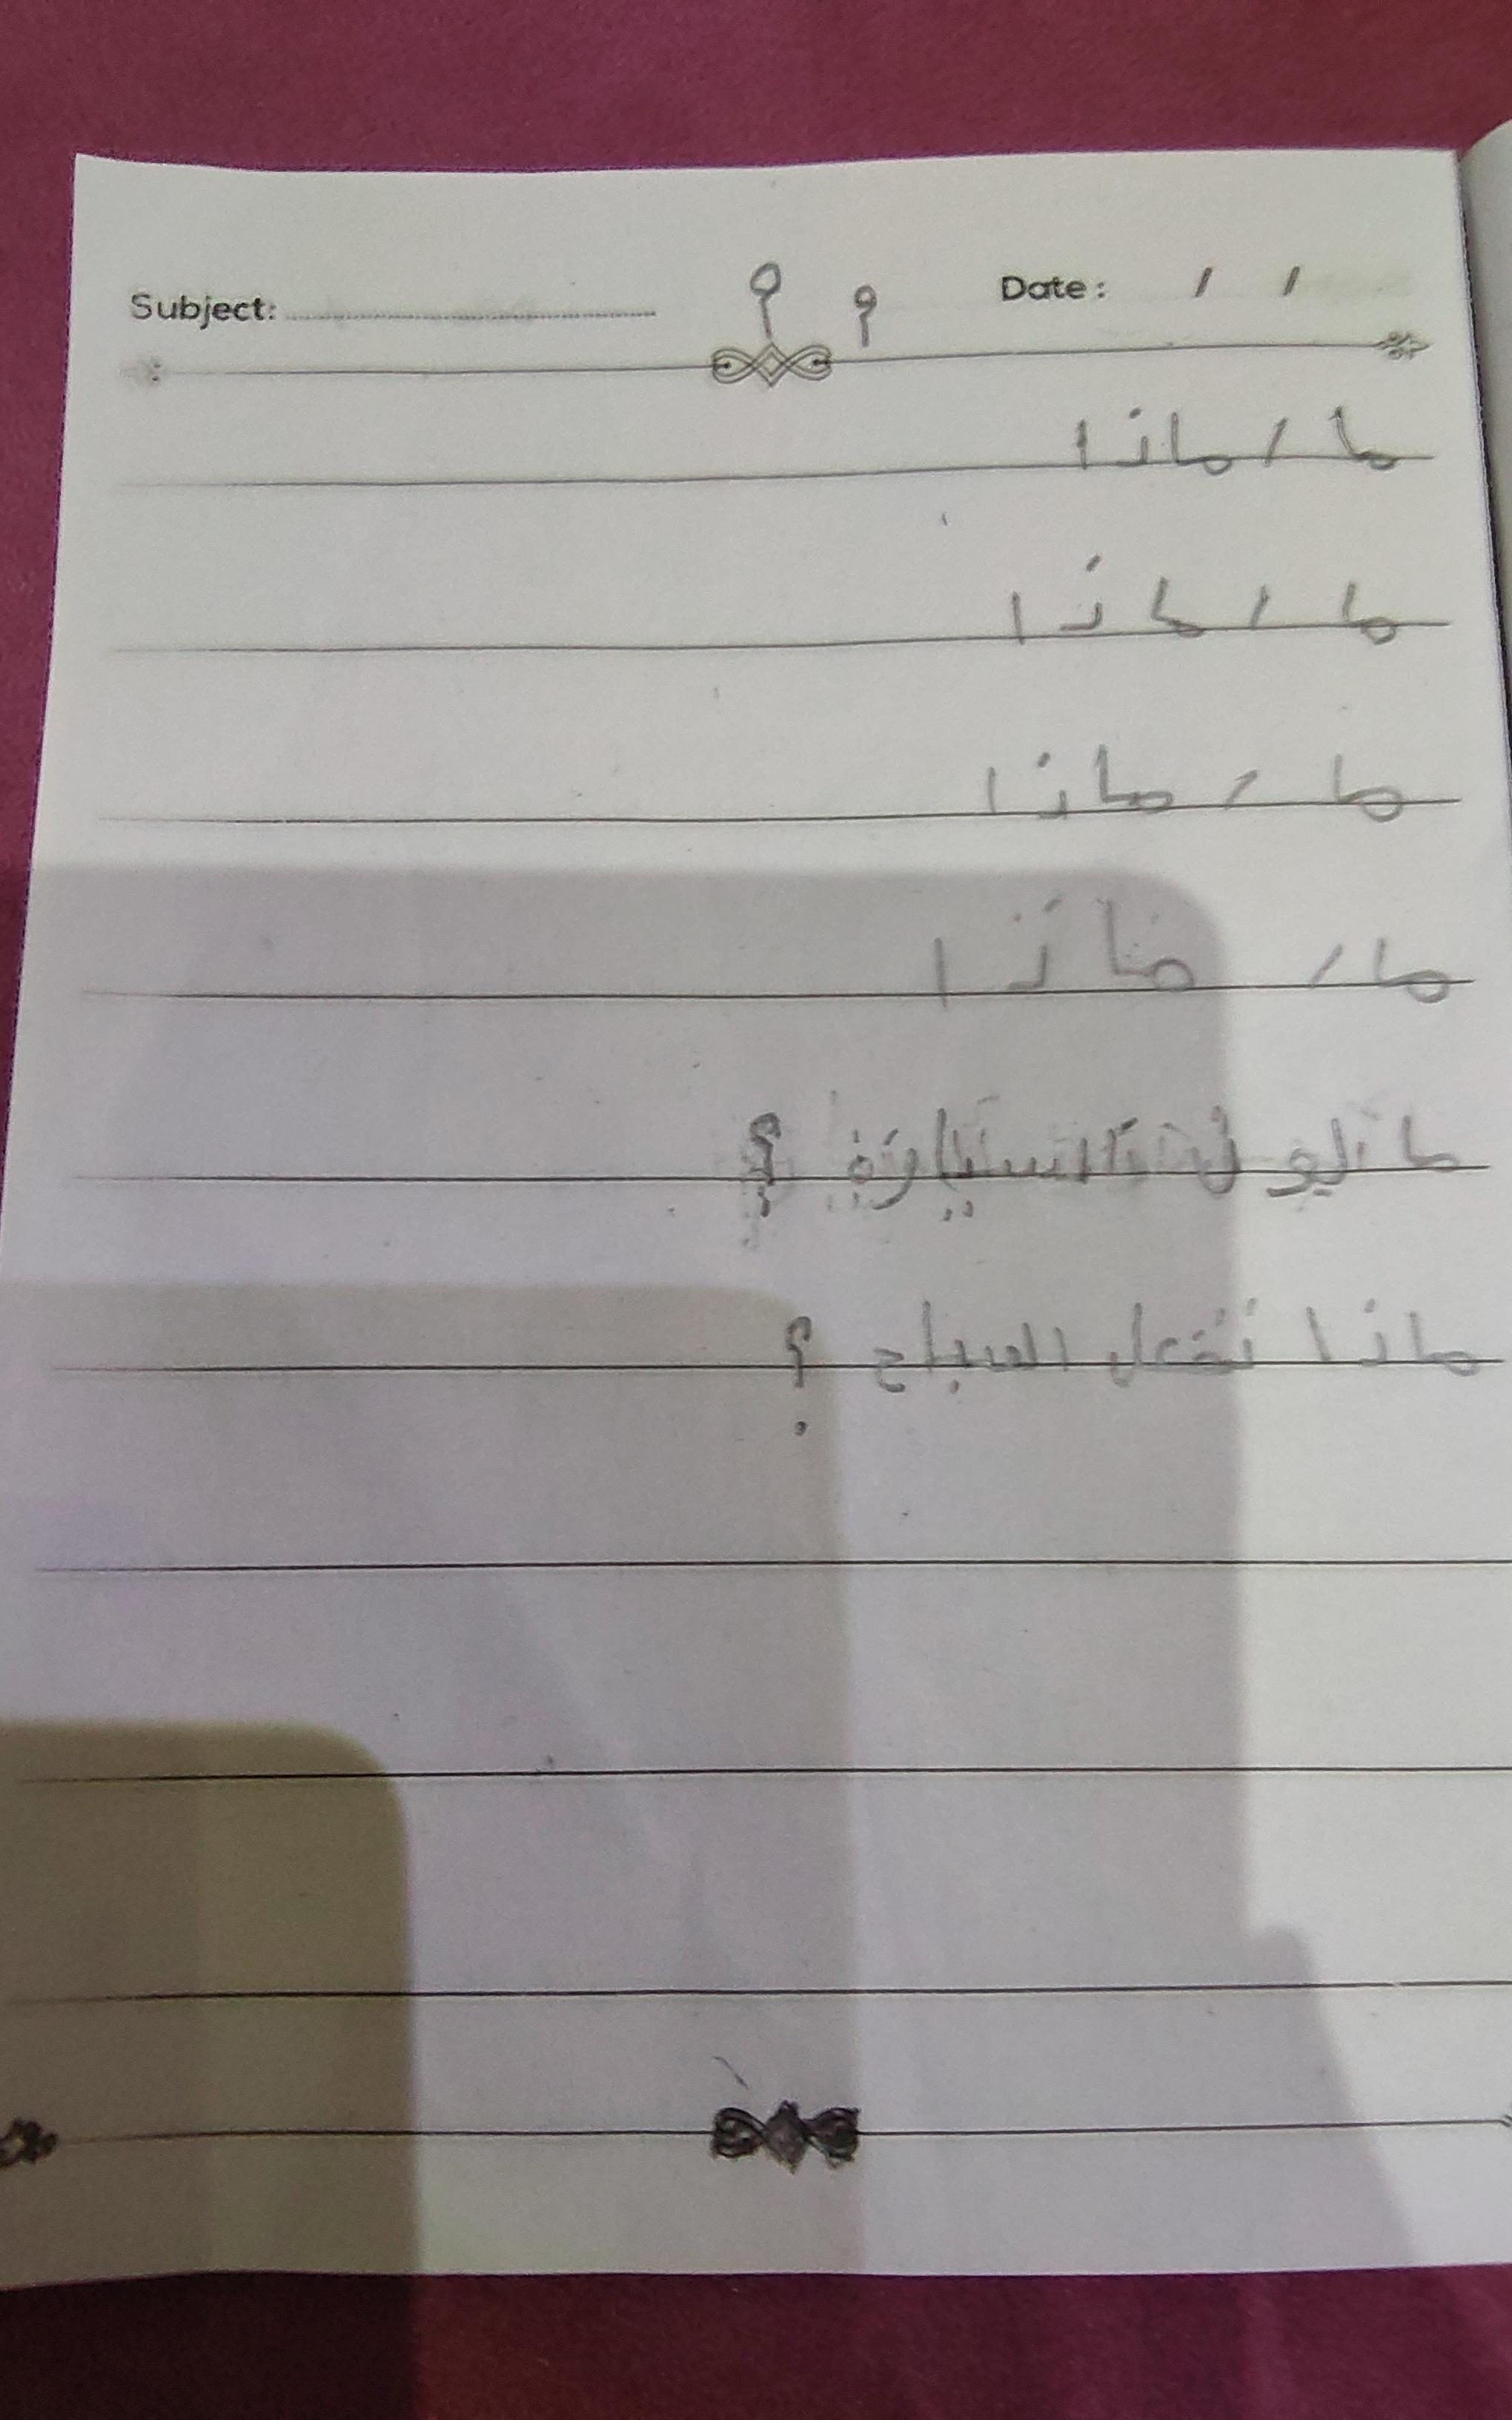 Subject: Date: / /
ما / ماذا
ما / ماذا
ما / ماذا
ما / ماذا
ما السيارة ؟
ماذا تفعل الصباح ؟